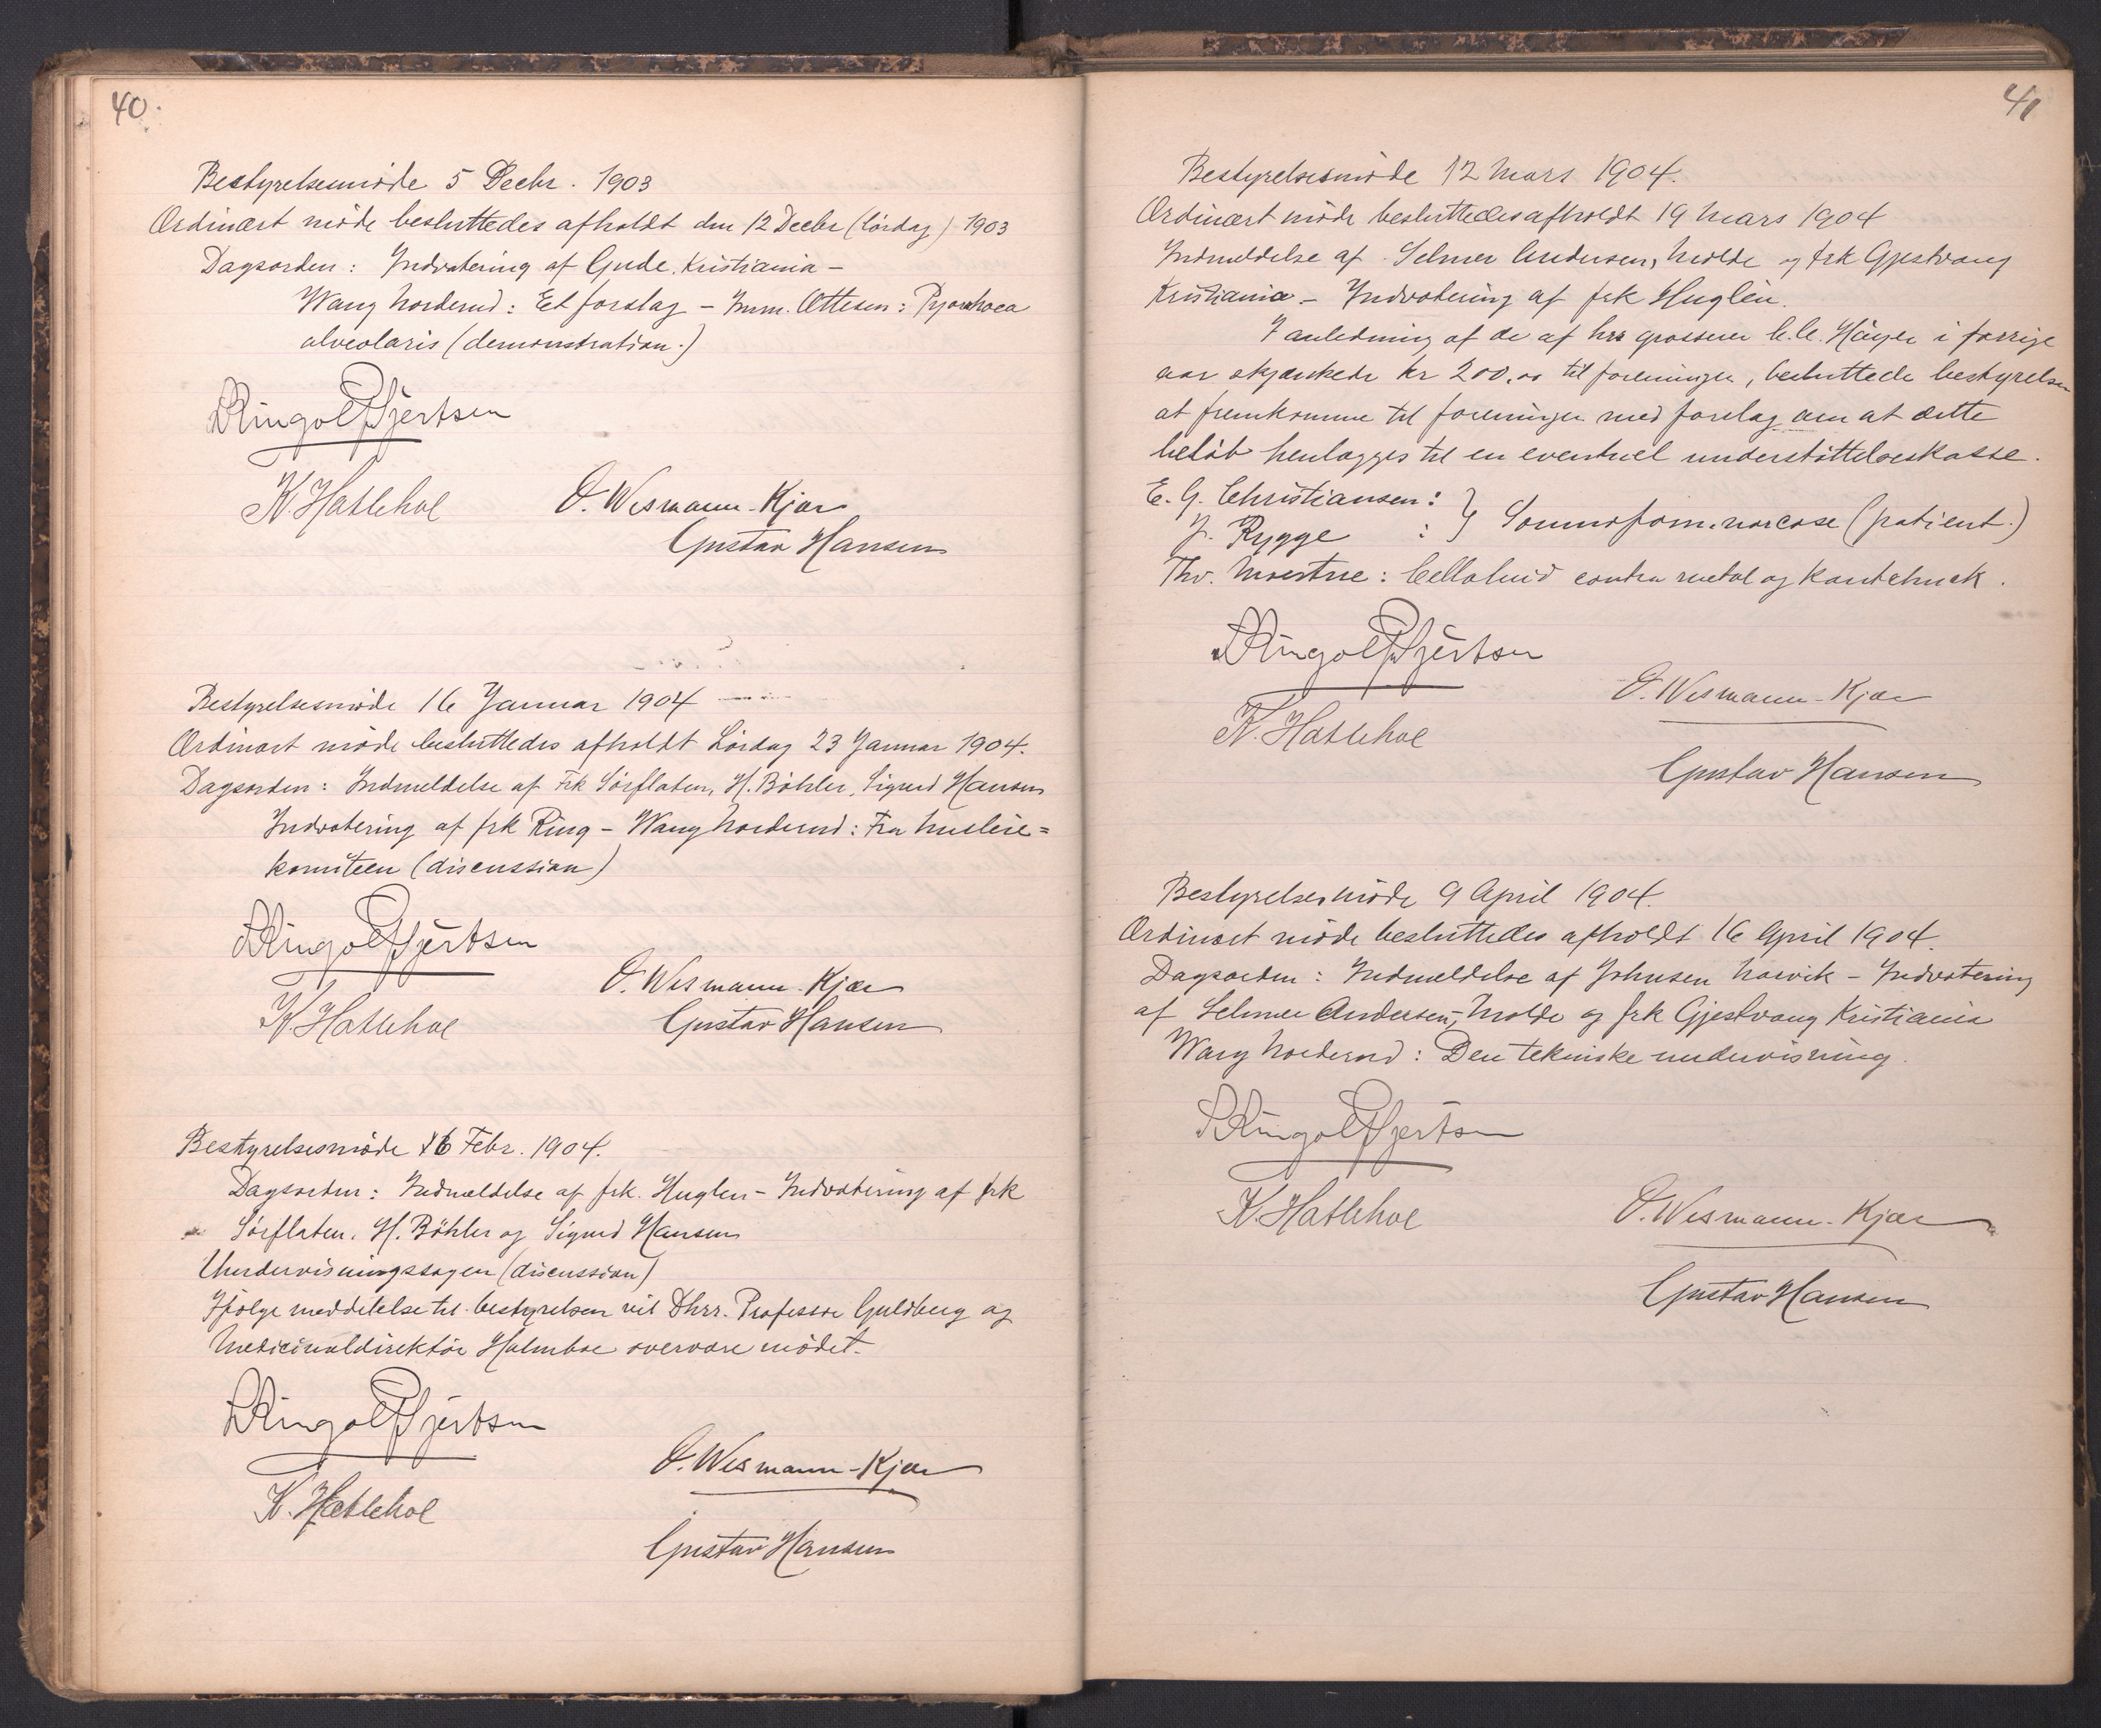 40.
Bestyrelsesmöde 5 Decbr. 1903
Ordinært möde besluttedes afholdt den 12 Decbr (lördag) 1903
Dagsorden: Indvotering af Gude, Kristiania –
Wang Norderud: Et forslag – Imm. Ottesen: Pyorrhoea
alveolaris (demonstration.)
Ringolf Gjertsen
K. Hatlehol O. Wesmann-Kjær
Gustav Hansen
Bestyrelsesmöde 16 Januar 1904
Ordinært möde besluttedes afholdt Lördag 23 Januar 1904.
Dagsorden: Indmeldelse af Frk Sörflaten, H. Böhler, Sigurd Hansen
Indvotering af frk Ring – Wang Norderud: Fra husleie=
komiteen (discussion)
Ringolf Gjertsen
O. Wesmann-Kjær
K. Hatlehol Gustav Hansen
Bestyrelsesmöde 16 Febr. 1904.
Dagsorden: Indmeldelse af frk. Huglen – Indvotering af frk
Sörflaten, H. Böhler og Sigurd Hansen
Undervisningssagen (discussion)
Ifölge meddelelse til bestyrelsen vil Dhrr. Professor Guldberg og
Medicinaldirektör Holmboe overvære mödet.
Ringolf Gjertsen
O. Wesmann-Kjær
K. Hatlehol
Gustav Hansen
41
Bestyrelsesmöde 12 Mars 1904.
Ordinært möde besluttedes afholdt 19 Mars 1904
Indmeldelse af Selmer Andersen, Molde og frk Gjestvang
Kristiania – Indvotering af frk Huglen.
I anledning af de af hrr grosserer C.C. Höyer i forrige
aar skjænkede kr 200.00 til foreningen, besluttede bestyrelsen
at fremkomme til foreningen med forslag om at dette
belöb henlægges til en eventuel understöttelseskasse.
E. G. Christiansen: }
J. Rygge : } Somnoform.narcose (patient.)
Thv. Moestue: Celloluid contra metal og Kautchuck.
Ringolf Gjertsen
O. Wesmann-Kjær
K. Hatlehol
Gustav Hansen
Bestyrelsesmöde 9 April 1904.
Ordinært möde besluttedes afholdt 16 April 1904.
Dagsorden: Indmeldelse af Johnsen Narvik – Indvotering
af Selmer Andersen, Molde og frk Gjestvang Kristiania
Wang Norderud: Den tekniske undervisning.
Ringolf Gjertsen
K. Hatlehol O. Wesmann-Kjær
Gustav Hansen